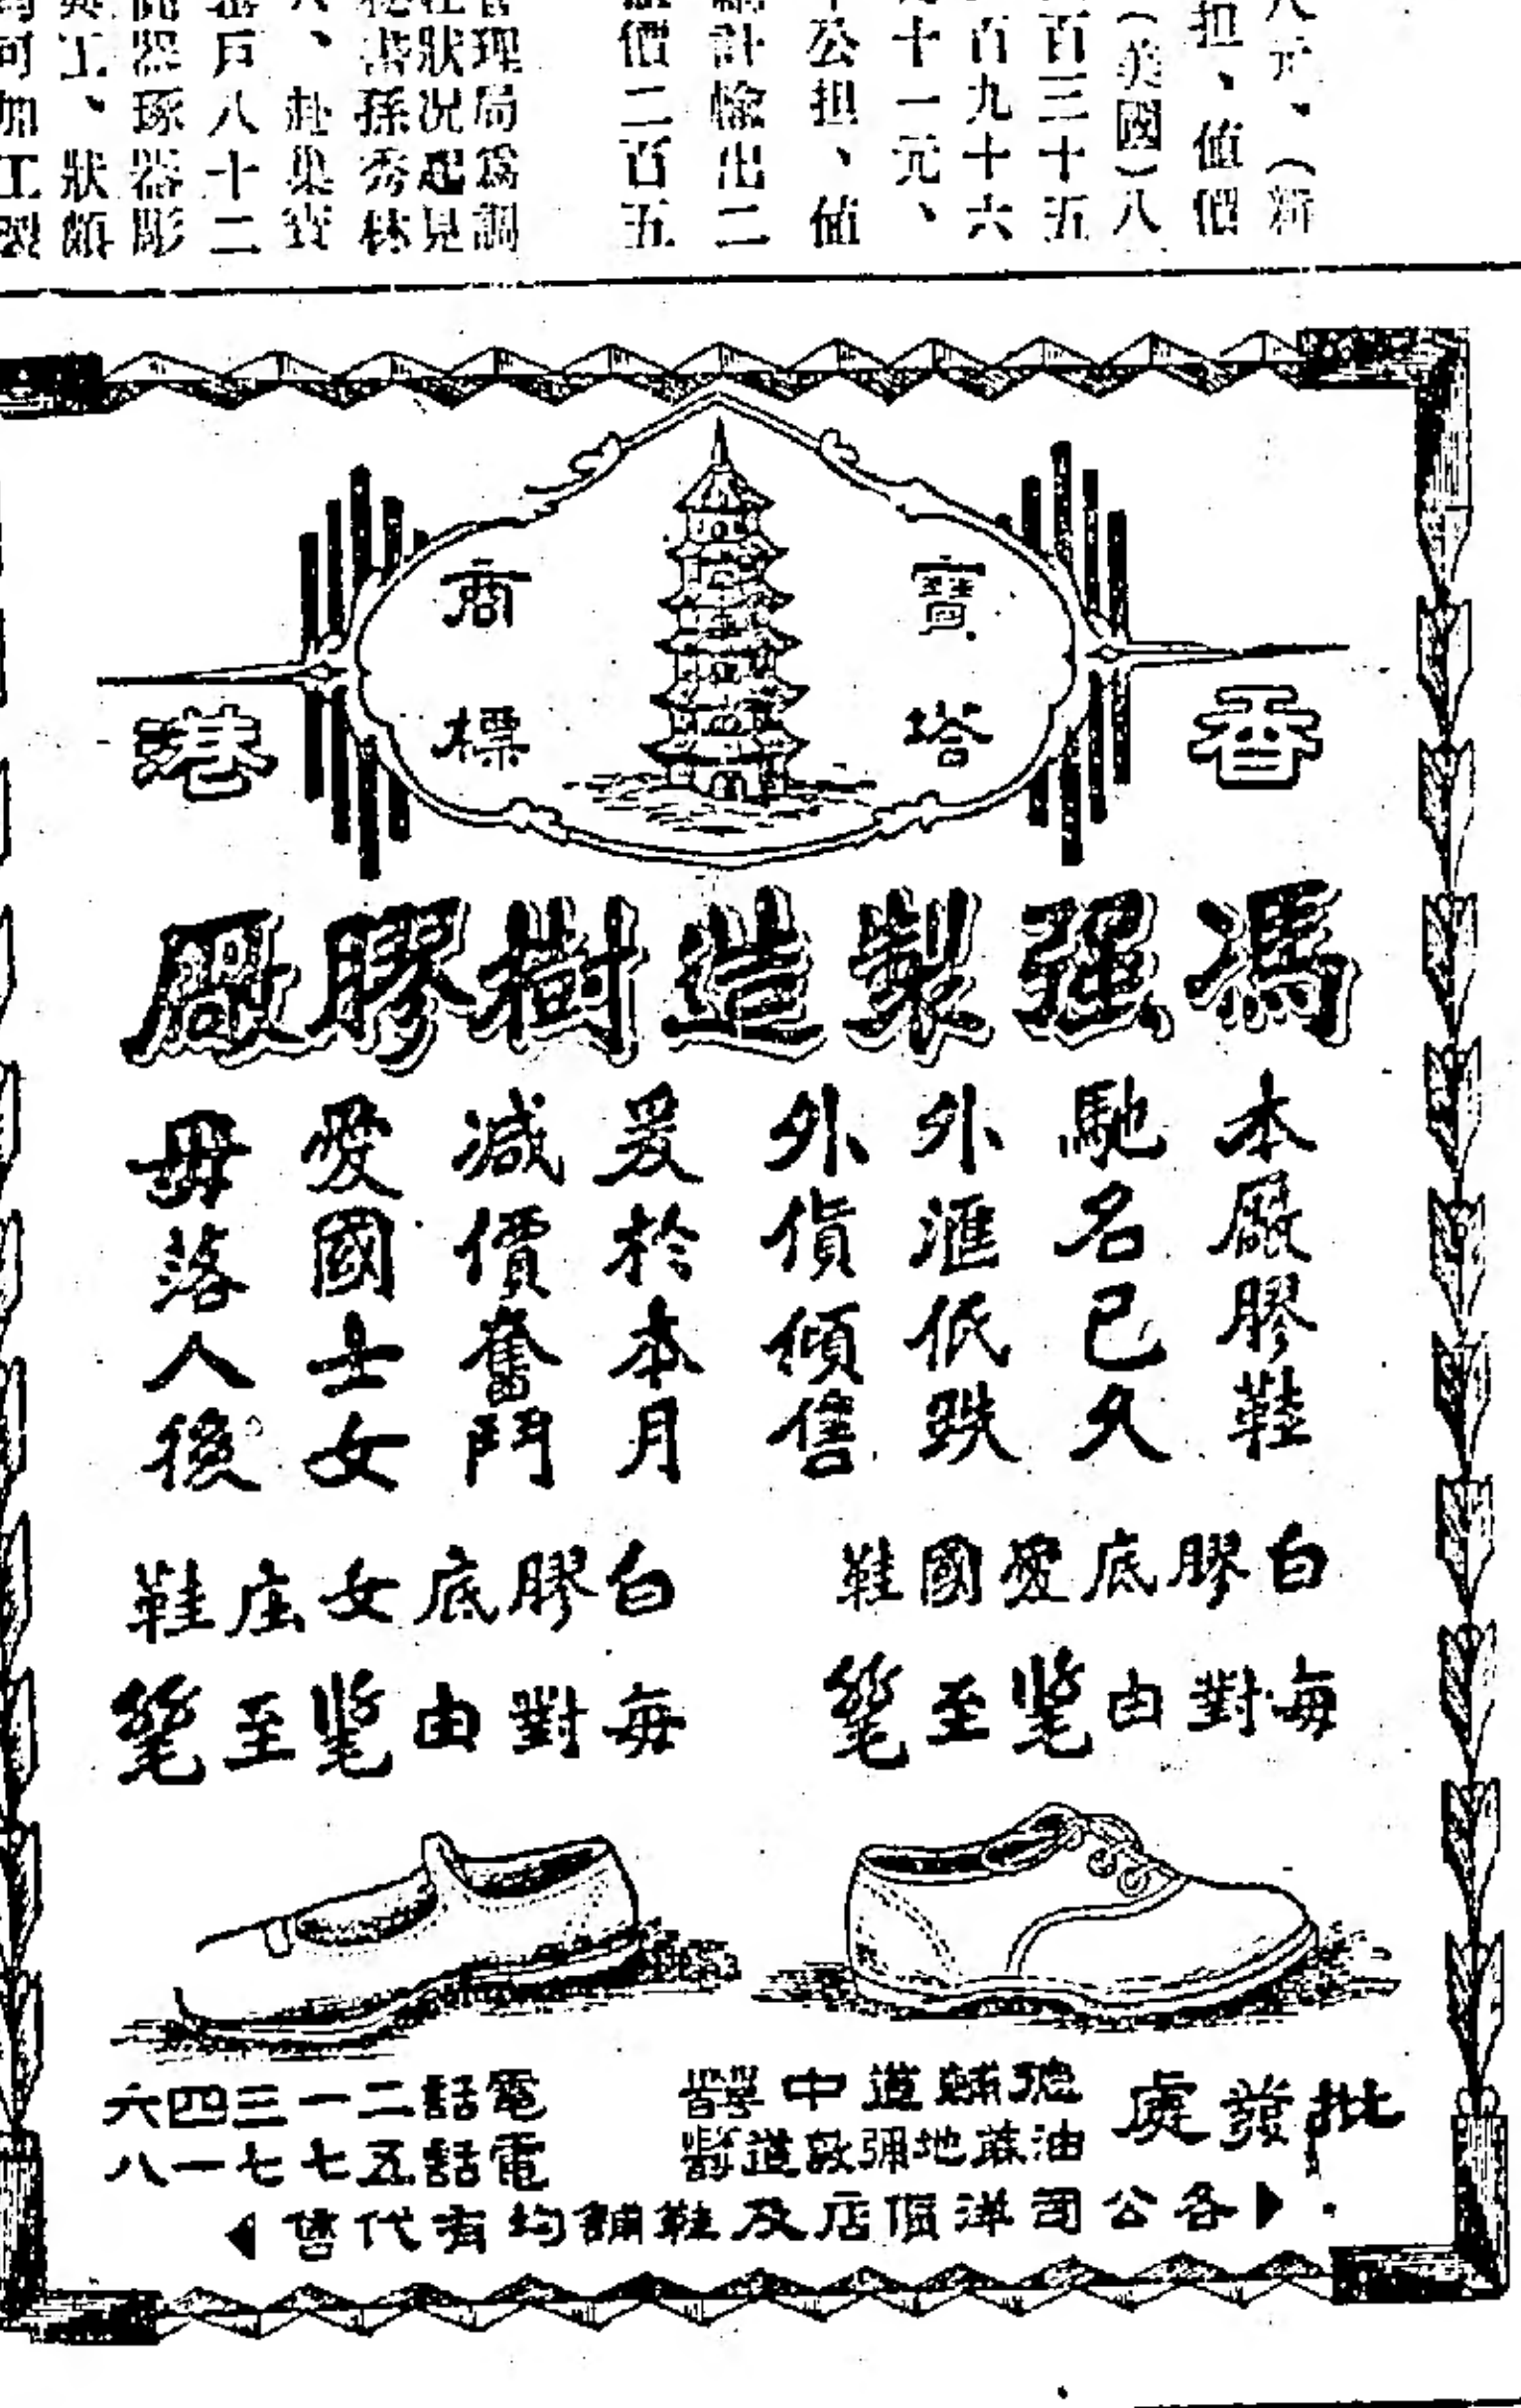 八元、(新
担、値價
(美國)八
百三十五
百九十六
十一元、
公担、値
計輸出二
價二百五
理局爲調
狀況起見
孫秀林
、赴集寶
戶八十二
器琢器彫
工、狀頗
可加工製
寶塔
商標
香港
馮强製造樹膠廠
本廠膠鞋
馳名已久
外滙低跌
外貨傾售
爰於本月
减價奮鬥
愛國士女
毋落人後
白膠底愛國鞋
每對由 至
白膠底女庄鞋
每對由 至
批發處
德輔道中
油蔴地彌敦道
電話二一三四六
電話五七七一八
各公司洋貨店及鞋舖均有代售